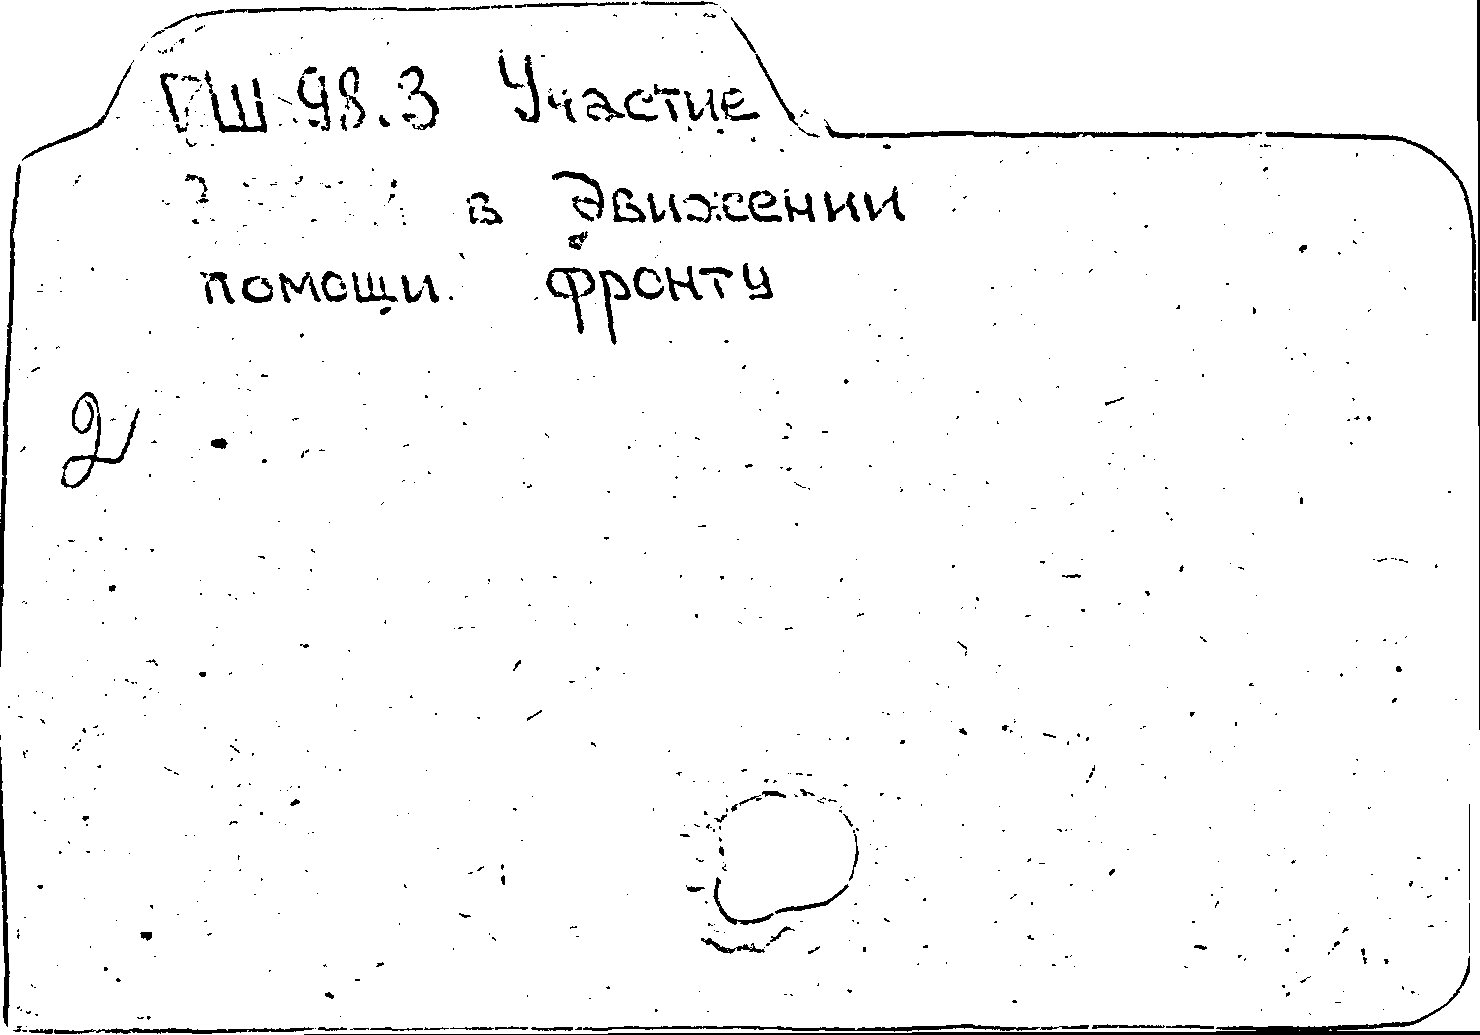 ГШ 98.3 Участие
в движении
помощи фронту
2